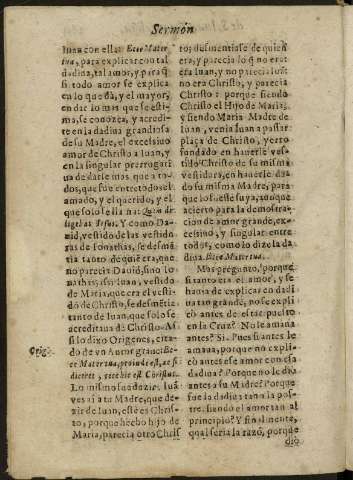 Sermón
Iuan con ella: Ecce Mater
tua, para explicar con tal
dadiua, tal amor, y para q̃
si todo amor se explica
en lo que dà, y el mayor,
en dar lo mas que se esti-
ma, se conozca, y acredi-
te en la dadiua grandiosa
de su Madre, el excelsiuo
amor de Christo a Iuan, y
en la singular prerrogati
ua de darle mas que a to-
dos, que fue entre todos el
amado, y el querido, y el
que solo se lleua: Quem di-
ligebat Iesus. Y como Da-
uid, vestido de las vestidu
ras de Ionathas, se desmẽ
tia tanto de quiẽ era, que
no parecia Dauid, sino Io
nathas; assi Iuan, vestido
de Maria, que era el vesti-
do de Christo, se desmẽtiè
tanto de Iuan, que solo se
acreditaua de Christo. As-
si lo dixo Origenes, cita-
do de vn Autor grande: Ec-
Orig.
ce Mater tua, proinde est, ac si
diceret, ecce hic est Christus.
Lo mismo fue dezir: Iuã
ves aì a tu Madre, que de-
zir de Iuan, esse es Chris-
to, porque hecho hijo de
Maria, parecia otro Chris
to; desmentiase de quien
era, y parecia lo q̃ no era:
era Iuan, y no parecia Iuã:
no era Christo, y parecia
Christo: porque siendo
Christo el Hijo de Maria,
y siendo Maria Madre de
Iuan, venia Iuan a passar
plaça de Christo, yerro
fundado en hauerle ves-
tido Christo de su misma
vestidura, en hauerle da-
do su misma Madre, para
que lo fuesse suya, aunque
acierto para la demostra-
cion de amor grande, ex-
cessiuo, y singular entre
todos, como lo dize la da
diua. Ecce Mater tua.
Mas pregunto, porque
si tanto era el amor, y se
hauia de explicar en dadi
ua tan grande, no se expli
cò antes de estar puesto
en la Cruz? No le amaua
antes? Si. Pues si antes le
amaua, porque no expli-
cò antes esse amor con essa
dadiua? Porque no le diò
antes a su Madre? Porque
fue la dadiua tan a lo pos-
tre, siendo el amor tan al
principio? Y finalmente,
qual seria la razõ, porque
diò